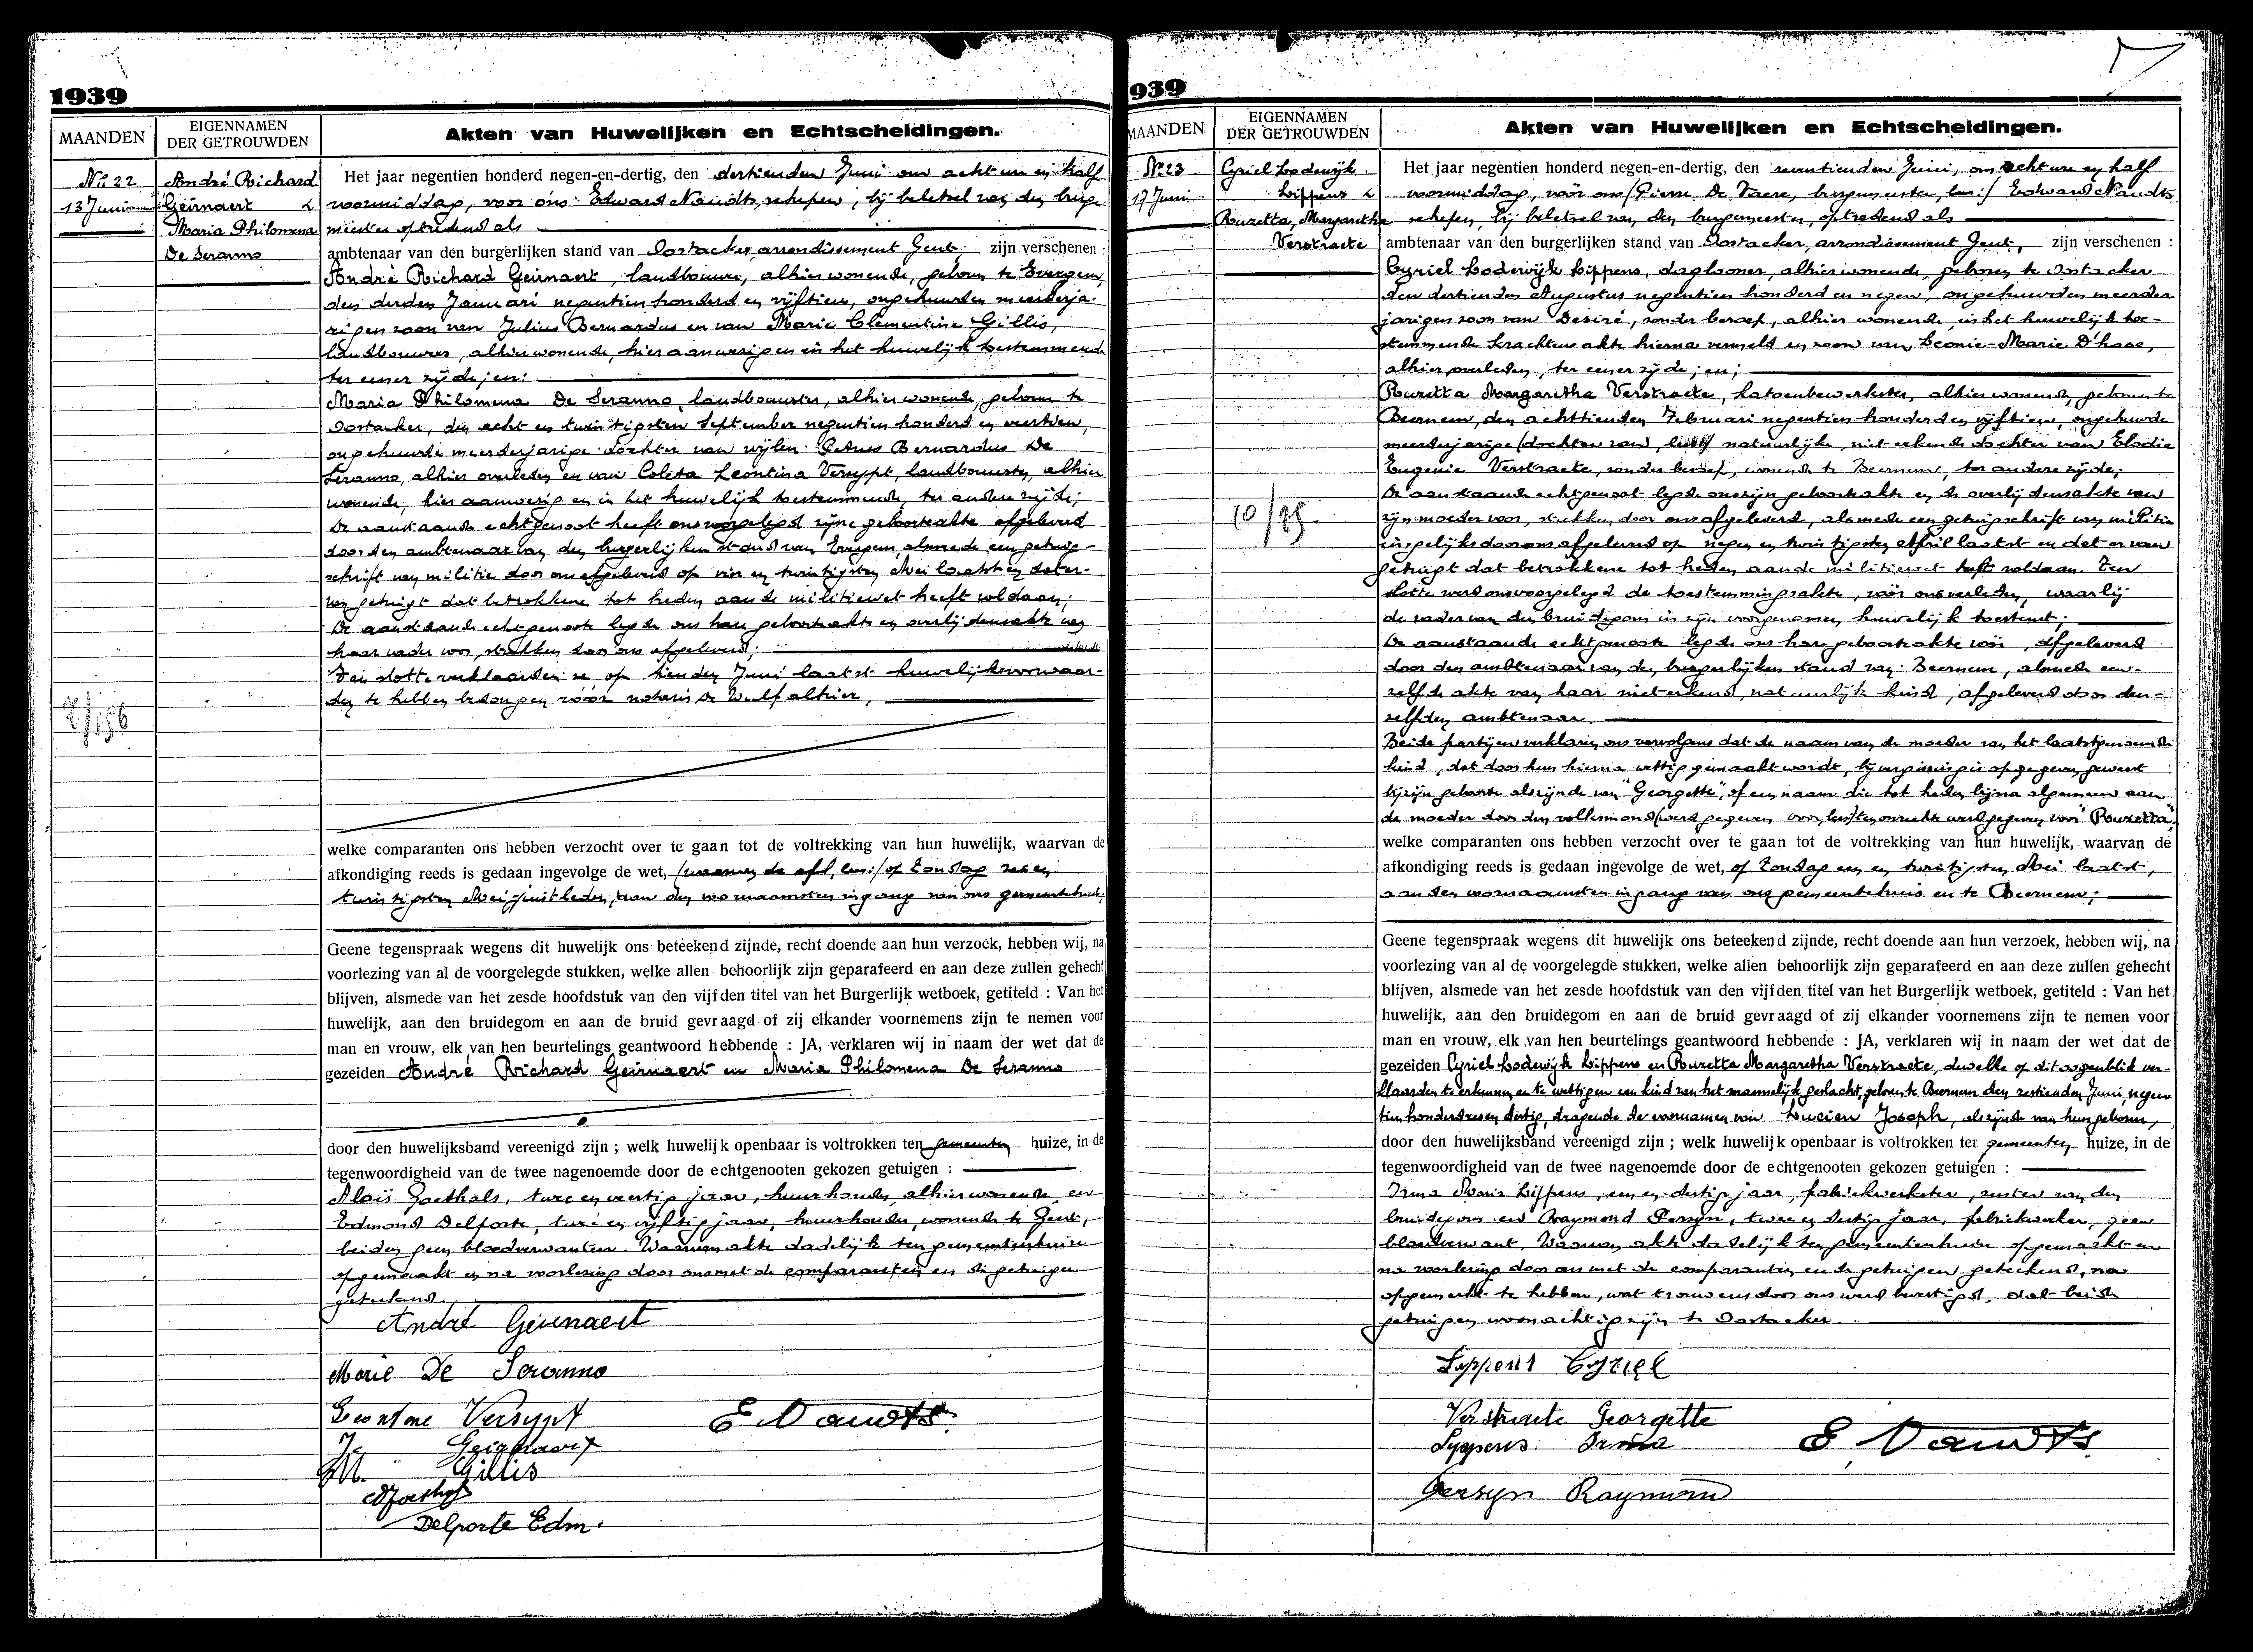 1939
MAANDEN
EIGENNAMEN
DER GETROUWDEN
Akten van Huwelijken en Echtscheidingen.
No 22
13 Juni
André Richard
Geirnaert &
Maria Philomena
De Seranno
Het jaar negentien honderd negen-en-dertig, den dertienden Juni om acht ure en half
voormiddag, voor ons Edward Naudts, schepen, bij beletsel van den burge-
meester optredend als
ambtenaar van den burgerlijken stand van Oostacker, arrondissement Gent, zijn verschenen :
André Richard Geirnaert, landbouwer, alhier wonende, geboren te Evergem,
den derden Januari negentien honderd en vijftien, ongehuurden meerderja-
rigen zoon van Julius Bernardus en van Marie Clementine Gillis,
landbouwers, alhier wonende, hier aanwezig en in het huwelijk toestemmend
ter eener zijde ; en :
Maria Philomena De Seranno, landbouwster, alhier wonende, geboren te
Oostacker, den acht en twintigsten September negentien honderd en veertien,
ongehuurde meerderjarige dochter van wijlen Petrus Bernardus De
Seranno, alhier overleden en van Coleta Leontina Versypt, landbouwster, alhier
wonende, hier aanwezig en in het huwelijk toestemmende, ter andere zijde;
De aanstaande echtgenoot heeft ons voorgelegd zijne geboorteakte afgeleverd
door den ambtenaar van den burgerlijken stand van Evergem, alsmede een getuig-
schrift van militie door ons afgeleverd op vier en twintigsten Mei laatst en daar-
van getuigt dat betrokkene tot heden aan de militiewet heeft voldaan;
De aanstaande echtgenoote legde ons hare geboorteakte en overlijdensakte van
haar vader voor, stukken door ons afgeleverd;
Ten slotte verklaarden ze op tienden Juni laatst huwelijksvoorwaar-
den te hebben bedongen vóór notaris De Wulf alhier,
welke comparanten ons hebben verzocht over te gaan tot de voltrekking van hun huwelijk, waarvan de
afkondiging reeds is gedaan ingevolge de wet, (waarvan de afl, lees:) op Zondag
twintigsten Mei juist leden, aan den voornaamsten ingang van ons gemeentehuis;
Geene tegenspraak wegens dit huwelijk ons beteekend zijnde, recht doende aan hun verzoek, hebben wij, na
voorlezing van al de voorgelegde stukken, welke allen behoorlijk zijn geparafeerd en aan deze zullen gehecht
blijven, alsmede van het zesde hoofdstuk van den vijfden titel van het Burgerlijk wetboek, getiteld : Van het
huwelijk, aan den bruidegom en aan de bruid gevraagd of zij elkander voornemens zijn te nemen voor
man en vrouw, elk van hen beurtelings geantwoord hebbende : JA, verklaren wij in naam der wet dat de
gezeiden André Richard Geirnaert en Maria Philomena De Seranno
door den huwelijksband vereenigd zijn ; welk huwelijk openbaar is voltrokken ten gemeenten huize, in de
tegenwoordigheid van de twee nagenoemde door de echtgenooten gekozen getuigen :
Aloïs Goethals, twee en veertig jaar, huurhouder, alhier wonende en
Edmond Delporte, twee en vijftig jaar, huurhouder, wonende te Gent,
beiden geen bloedverwanten. Waarvan akte dadelijk ten gemeentenhuize
opgemaakt en na voorlezing door ons met de comparanten en de getuigen
geteekend.
André Geirnaert
Marie De Seranno
Leontine Versypt
E Naudts
J. Geirnaert
M. Gillis
Delporte Edm.
939
MAANDEN
EIGENNAMEN
DER GETROUWDEN
Akten van Huwelijken en Echtscheidingen.
No 23
17 Juni
Cyriel Lodewijk
Lippens &
Rouzetta, Margaretha
Verstraete
10/75.
Het jaar negentien honderd negen-en-dertig, den zeventienden Juni, om acht ure en half
voormiddag, vóór ons (Pierre De Vaere, burgemeester, lees:) Edward Naudts
schepen, bij beletsel van den burgemeester, optredend als
ambtenaar van den burgerlijken stand van Oostacker, arrondissement Gent, zijn verschenen :
Cyriel Lodewijk Lippens, dagloner, alhier wonende, geboren te Oostacker
den dertienden Augustus negentien honderd en negen, ongehuurden meerder
jarigen zoon van Desiré, zonder beroep, alhier wonende, in het huwelijk toe-
stemmende krachtens akte hierna vermeld en zoon van Leonie-Marie D'haese,
alhier overleden, ter eener zijde ; en ;
Rouzetta Margaretha Verstraete, katoenbewerkster, alhier wonende, geboren te
Beernem, den achttienden Februari negentien honderd en vijftien, ongehuurde
meerderjarige (dochter van, lees:) natuurlijke, niet erkende dochter van Elodie
Eugenie Verstraete, zonder beroep, wonende te Beernem, ter andere zijde;
De aanstaande echtgenoot legde ons zijn geboorteakte en de overlijdensakte van
zijn moeder voor, stukken door ons afgeleverd, alsmede een getuigschrift van militie
insgelijks door ons afgeleverd op negen en twintigsten April laatst en dat er van
getuigt dat betrokkene tot heden aan de militiewet heeft voldaan. Ten
slotte werd ons voorgelegd de toestemmingsakte, vóór ons verleden, waarbij
de vader van den bruidegom in zijn voorgenomen huwelijk toestemt;
De aanstaande echtgenoote legde ons hare geboorteakte vóór, afgeleverd
door den ambtenaar van den burgerlijken stand van Beernem, alsmede een-
zelfde akte van haar niet erkend, natuurlijk kind, afgeleverd door den-
zelfden ambtenaar.
Beide partijen verklaren ons vervolgens dat de naam van de moeder van het laatstgenoemde
kind, dat door hun hierna wettig gemaakt wordt, bij vergissing is opgegeven geweest
bij zijn geboorte als zijnde van "Georgette", of een naam die tot heden bijna algemeen aan
de moeder door den volksmond (werd gegeven voor, lees:) ten onrechte werd gegeven voor "Rouzetta",
welke comparanten ons hebben verzocht over te gaan tot de voltrekking van hun huwelijk, waarvan de
afkondiging reeds is gedaan ingevolge de wet, op Zondag een en twintigsten Mei laatst,
aan den voornaamsten ingang van ons gemeentehuis en te Beernem;
Geene tegenspraak wegens dit huwelijk ons beteekend zijnde, recht doende aan hun verzoek, hebben wij, na
voorlezing van al de voorgelegde stukken, welke allen behoorlijk zijn geparafeerd en aan deze zullen gehecht
blijven, alsmede van het zesde hoofdstuk van den vijfden titel van het Burgerlijk wetboek, getiteld : Van het
huwelijk, aan den bruidegom en aan de bruid gevraagd of zij elkander voornemens zijn te nemen voor
man en vrouw, elk van hen beurtelings geantwoord hebbende : JA, verklaren wij in naam der wet dat de
gezeiden Cyriel Lodewijk Lippens en Rouzetta Margaretha Verstraete, dewelke op dit oogenblik ver-
klaarden te erkennen en te wettigen een kind van het mannelijk geslacht, geboren te Beernem den zestienden Juni, negen
tien honderd zes en dertig, dragende de voornamen van Lucien Joseph, als zijnde van hun geboren,
door den huwelijksband vereenigd zijn ; welk huwelijk openbaar is voltrokken ter gemeenten huize, in de
tegenwoordigheid van de twee nagenoemde door de echtgenooten gekozen getuigen :
Irma Maria Lippens, een en dertig jaar, fabriekwerkster, zuster van den
bruidegom en Raymond Persyn, twee en dertig jaar, fabriekwerker, geen
bloedverwant, Waarvan akte dadelijk ten gemeentenhuize opgemaakt en
na voorlezing door ons met de comparanten en de getuigen geteekend, na
opgemerkt te hebben, wat trouwens door ons werd bevestigd, dat beide
getuigen woonachtig zijn te Oostacker.
Lippens Cyriel
Verstraete Georgette
Lippens Irma
E. Naudts
Persyn Raymond